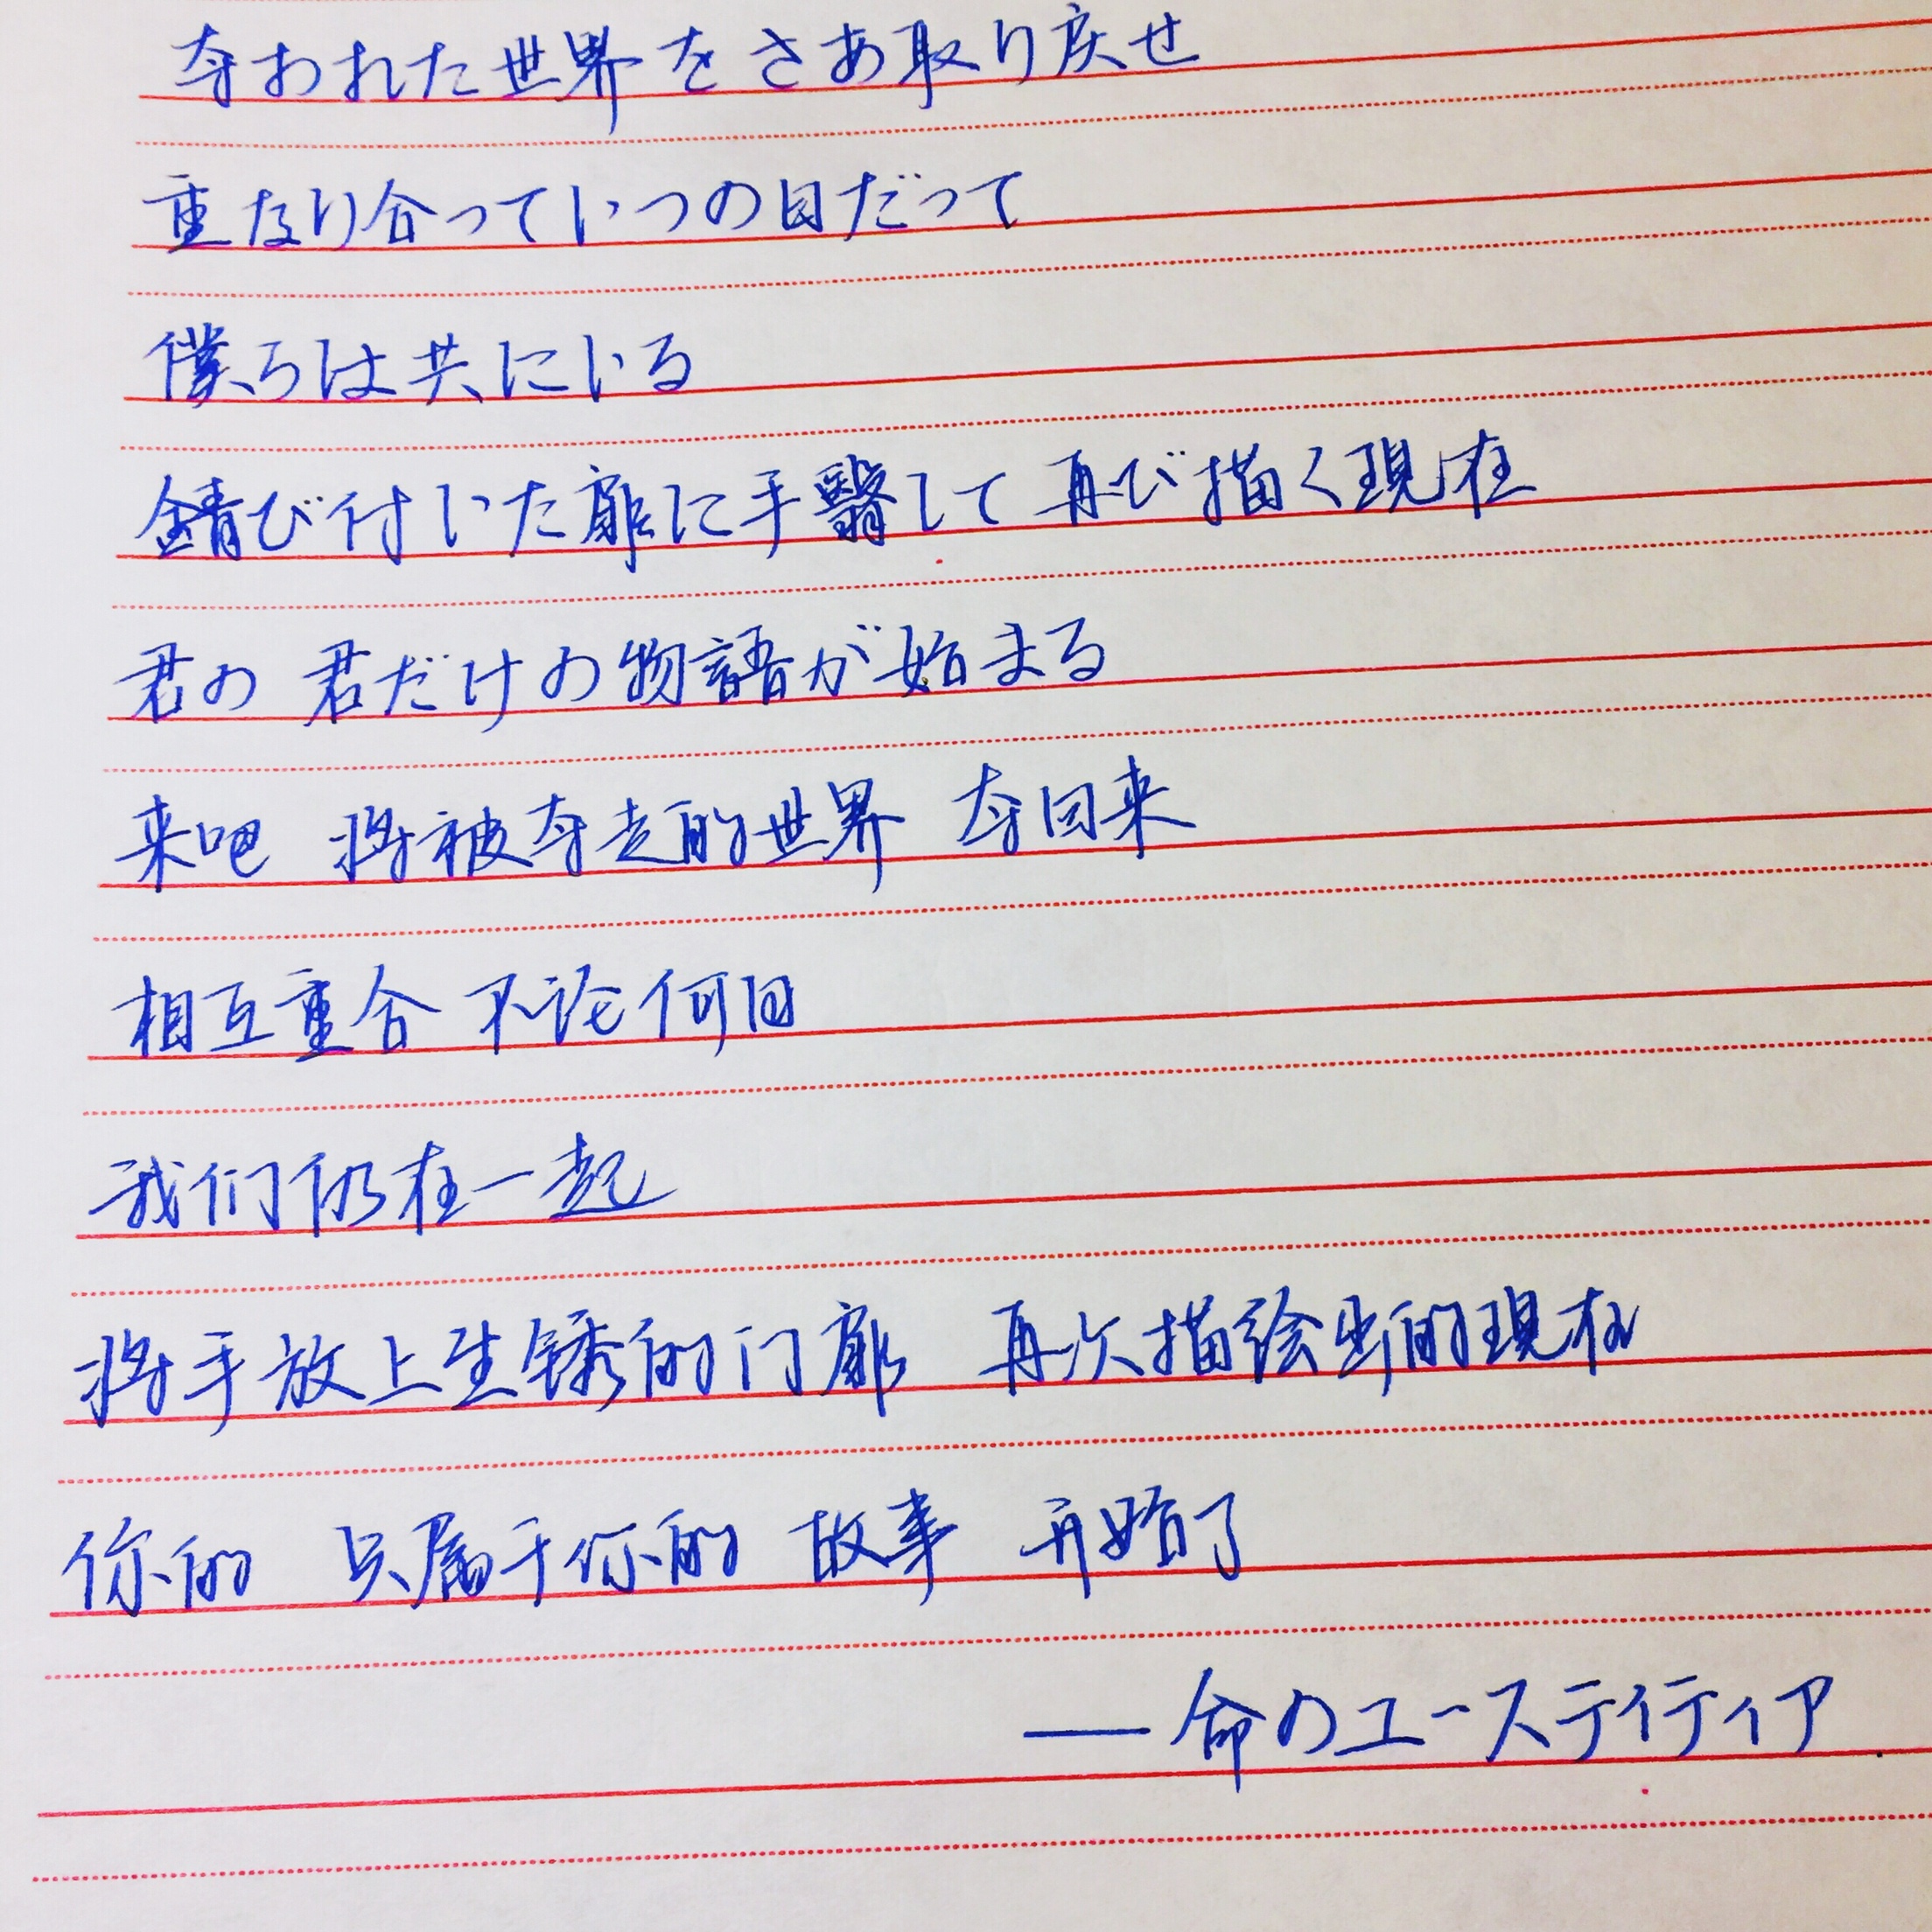 夺われた世界をさあ取り戻せ
重なり合っていつの日だって
僕らは共にいる
錆び付いた扉に手翳して 再び描く現在
君の 君だけの物語が始まる
来吧 将被夺走的世界 夺回来
相互重合 不论何日
我们仍在一起
将手放上生锈的门扉 再次描绘出的現在
你的 只属于你的 故事 开始了
——命のユースティティア